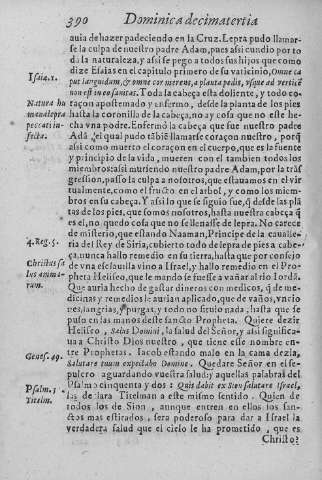 390 Dominica decimatertia
auia de hazer padeciendo en la Cruz. Lepra pudo llamar-
se la culpa de nuestro padre Adam, pues assi cundio por to
da la naturaleza, y assi se pego a todos sus hijos que como
Isaiæ.1. dize Esaias en el capitulo primero de su vaticinio, Omne ca
put languidum, & omne cor mœrens, a planta pedis, vsque ad verticẽ
non est in eo sanitas. Toda la cabeça esta doliente, y todo co
Natura hu raçon apostemado y enfermo, desde la planta de los pies
mana lepra hasta la coronilla de la cabeça, no ay cosa que no este he-
peccati in- cha vna podre. Enfermò la cabeça que fue nuestro padre
fecta. Adã, el qual pudo tãbiẽ llamarse coraçon nuestro, porq̃
assi como muerto el coraçon en el cuerpo, que es la fuente
y principio de la vida, mueren con el tambien todos los
miembros: assi muriendo nuestro padre Adam, por la trãs
gression, passò la culpa a nosotros, que estauamos en el vir
tualmente, como el fructo en el arbol, y como los miem-
bros en su cabeça. Y assi lo que se siguio fue, q̃ desde las plã
tas de los pies, que somos nosotros, hasta nuestra cabeça q̃
es el, no quedo cosa que no se llenasse de lepra. No carece
4. Reg. 5. de misterio, que estando Naaman, Principe de la caualle-
ria del Rey de Siria, cubierto todo de lepra de pies a cabe-
Christus sa ça, nunca hallo remedio en su tierra, hasta que por consejo
lus anima- de vna esclauilla vino a Israel, y hallo remedio en el Pro-
rum. pheta Heliseo, que le mando se fuesse a vañar al rio Iordã.
Que auria hecho de gastar dineros con medicos, q̃ de me-
dicinas y remedios le aurian aplicado, que de vaños, vncio
nes, sangrias, purgas, y todo no fruto nada, hasta que se
puso en las manos deste sancto Propheta. Quiere dezir
Heliseo, Salus Domini, la salud del Señor, y assi significa-
ua a Christo Dios nuestro, que tiene esse nombre en-
Genes. 49. tre Prophetas. Iacob estando malo en la cama dezia,
Salutare tuum expectabo Domine. Quedare Señor en el se-
pulcro aguardando vuestra salud: y aquellas palabras del
Psalm. 5 Psalmo cinquenta y dos: Quis dabit ex Sion salutare Israel,
Titelm. las declara Titelman a este mismo sentido. Quien de
todos los de Sion, aunque entren en ellos los san-
ctos mas estirados, sera poderoso para dar a Israel la
verdadera salud que el cielo le ha prometido, que es
Christo?